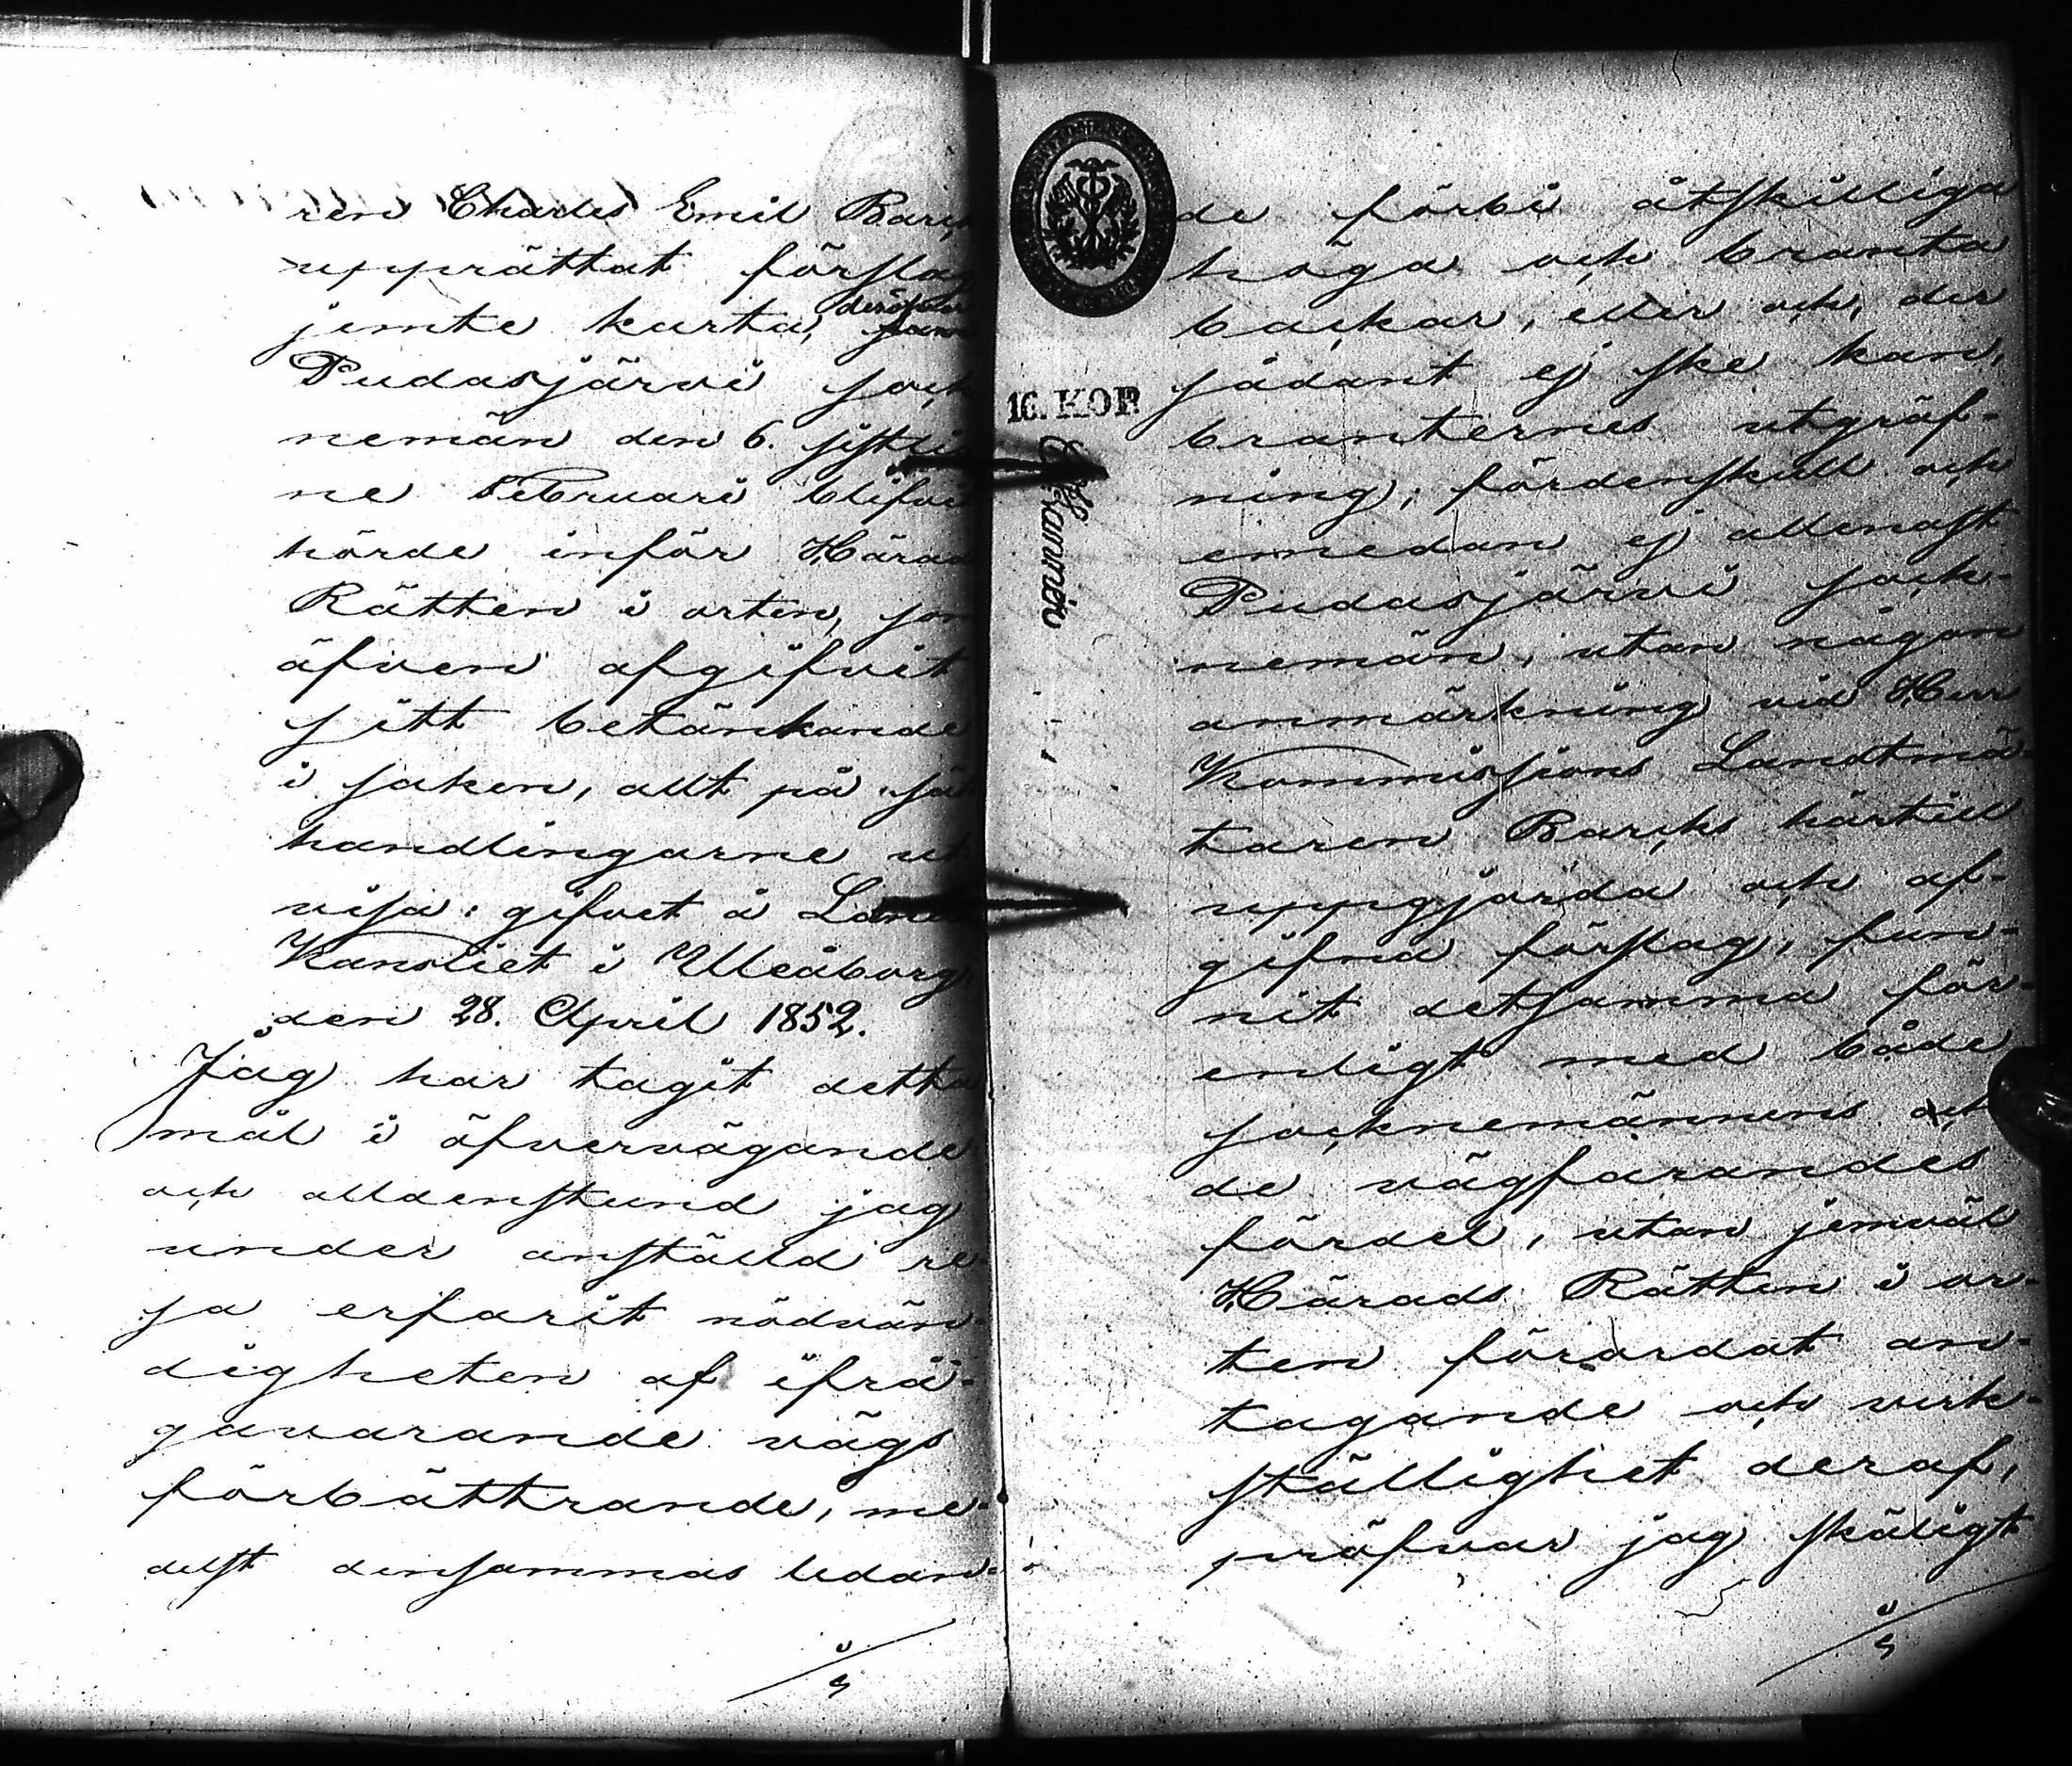 ren Charles Emil Barck
upprättat förslag
jemte karta, deröfver
Pudasjärvi sock
nemän den 6. sistlid
ne Februari blifvit
hörde inför Härads
Rätten i orten, som
äfven afgifvit
sitt betänkande
i saken, allt på sätt
handlingarne ut
visa: gifvet å Lands
Kansliet i Uleåborg,
den 28. April 1852.
Jag har tagit detta
mål i öfvervägande
och alldenstund jag
under anställd re
sa erfarit nödvän-
digheten af ifrå-
gavarande vägs
förbättrande, me-
delst densammas ledan-
16. KOP.
de förbi åtskilliga
höga och branta
backar, eller och, der
sådant ej ske kan,
branternes utgräf-
ning; fördenskull och
emedan ej allenast
Pudasjärvi sock-
nemän, utan någon
anmärkning vid Herr
Kommissions Landtmä-
taren Barcks härtill
uppgjorda och af-
gifna förslag, fun-
nit detsamma för-
enligt med både
socknemännens och
de vägfarandes
fördel, utan jemväl
Härads Rätten i or-
ten förordat an-
tagande och verk-
ställighet deraf,
pröfvar jag skäligt